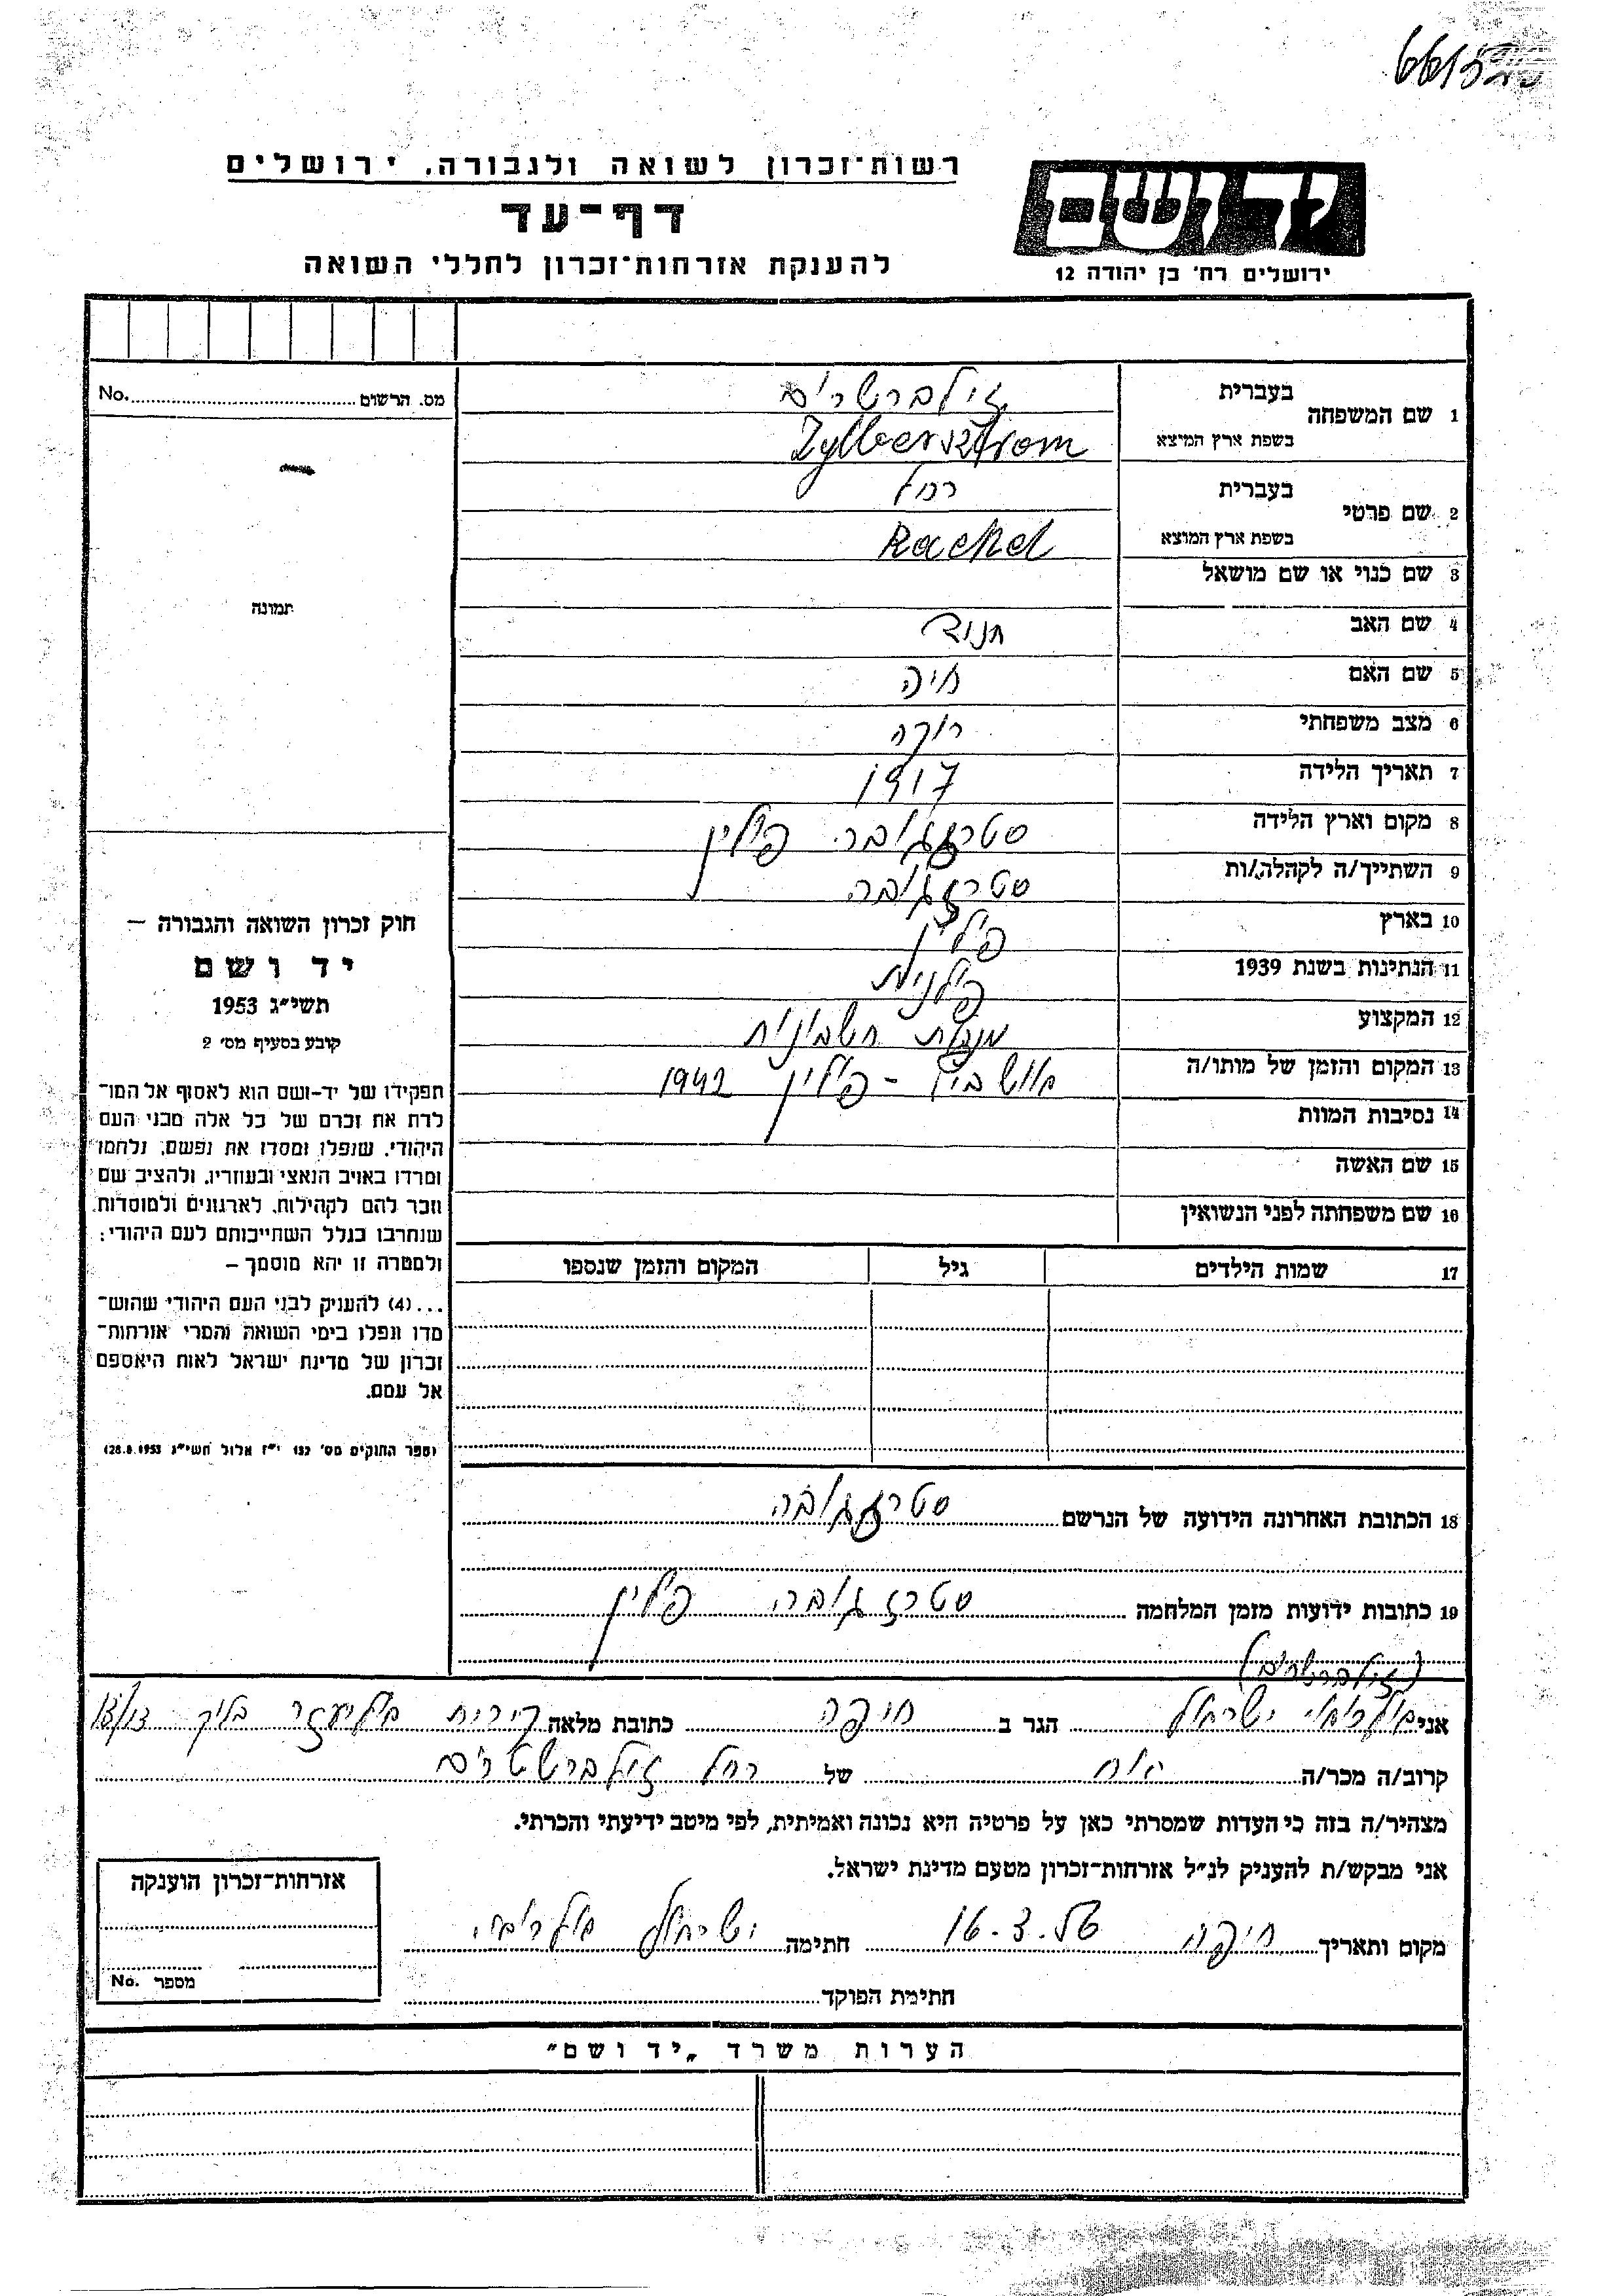 רשות־זכרון לשואה ולגבורה, ירושלים
דף־עד
להענקת אזרחות־זכרון לחללי השואה
יד ושם
ירושלים רח' בן יהודה 12
מס. הרשום No.
תמונה
חוק זכרון השואה והגבורה —
יד ושם
תשי״ג 1953
קובע בסעיף מס' 2
תפקידו של יד-ושם הוא לאסוף אל המו־
לדת את זכרם של כל אלה מבני העם
היהודי, שנפלו ומסרו את נפשם, נלחמו
ומרדו באויב הנאצי ובעוזריו, ולהציב שם
וזכר להם לקהילות, לארגונים ולמוסדות,
שנחרבו בגלל השתייכותם לעם היהודי;
ולמטרה זו יהא מוסמך —
...(4) להעניק לבני העם היהודי שהוש־
מדו ונפלו בימי השואה והמרי אזרחות־
זכרון של מדינת ישראל לאות היאספם
אל עמם.
(ספר החוקים מס' 132 י״ז אלול תשי״ג 28.8.1953)
1 שם המשפחה בעברית זילברשטרום
בשפת ארץ המוצא Zylbersztrom
2 שם פרטי בעברית רחל
בשפת ארץ המוצא Rachel
3 שם כנוי או שם מושאל
4 שם האב חנוך
5 שם האם חיה
6 מצב משפחתי רוקה
7 תאריך הלידה 1917
8 מקום וארץ הלידה פולין
9 השתייך/ה לקהלה/ות
10 בארץ פולין
11 הנתינות בשנת 1939 פולנית
12 המקצוע מנהלת חשבונות
13 המקום והזמן של מותו/ה אושבין - פולין 1942
14 נסיבות המוות
15 שם האשה
16 שם משפחתה לפני הנשואין
17 שמות הילדים גיל המקום והזמן שנספו
18 הכתובת האחרונה הידועה של הנרשם
19 כתובות ידועות מזמן המלחמה פולין
אני ישראל הגר ב חיפה כתובת מלאה קרית אליעזר בלוק 13/13
קרוב/ה מכר/ה אח של רחל זילברשטרום
מצהיר/ה בזה כי העדות שמסרתי כאן על פרטיה היא נכונה ואמיתית, לפי מיטב ידיעתי והכרתי.
אני מבקש/ת להעניק לנ״ל אזרחות־זכרון מטעם מדינת ישראל.
מקום ותאריך חיפה 16.3.56 חתימה ישראל
חתימת הפוקד
אזרחות־זכרון הוענקה
מספר No.
הערות משרד „יד ושם״